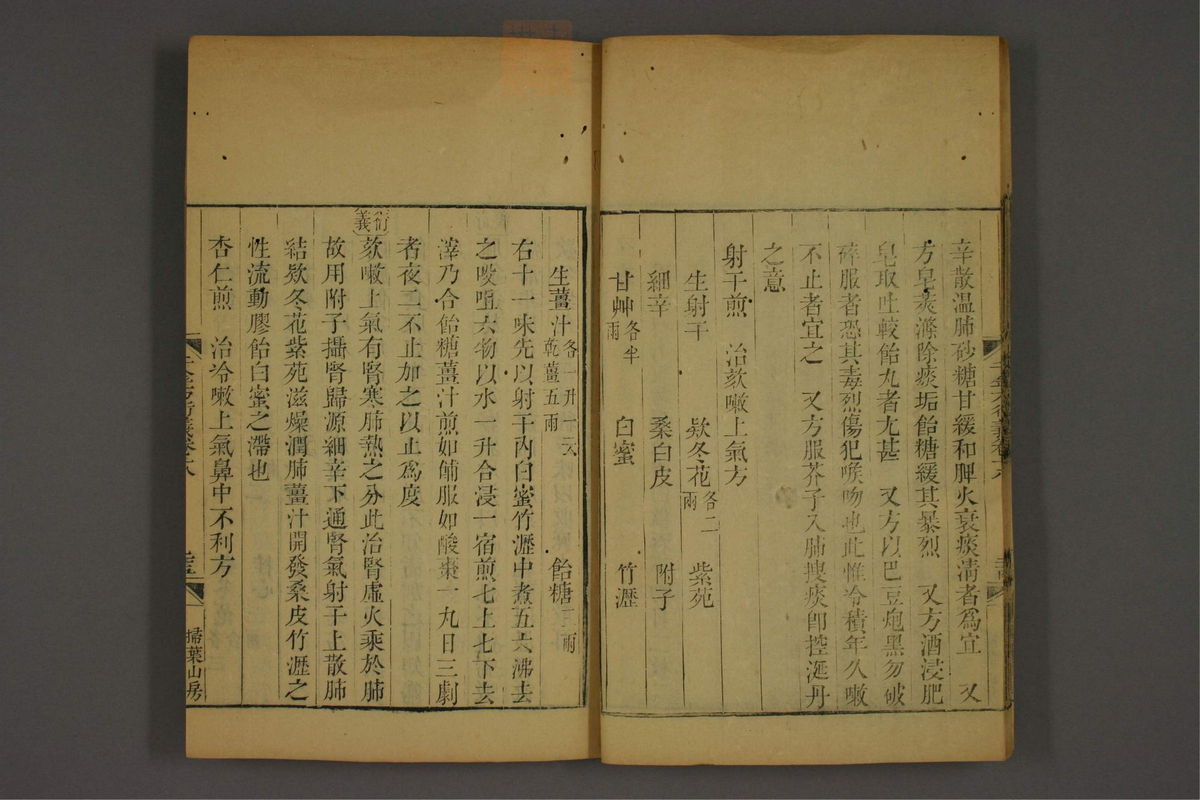 辛散温肺砂糖甘緩和脾火衰痰清者爲宜　又
方皂莢滌除痰垢飴糖緩其暴烈　又方酒浸肥
皂取吐較飴丸者尤甚　又方以巴豆炮黑勿破
碎服者恐其毒烈傷犯喉吻也此惟冷積年久嗽
不止者宜之　又方服芥子入肺搜痰卽控涎丹
之意
射干煎　治欬嗽上氣方
生射干　欵冬花各二兩　紫苑
細辛　桑白皮　附子
甘艸各半兩　白蜜　竹瀝
生薑汁各一升一云乾薑五兩　飴糖
右十一味先以射干內白蜜竹瀝中煮五六沸去
之㕮咀六物以水一升合浸一宿煎七上七下去
滓乃合飴糖薑汁煎如餔服如酸棗一丸日三劇
者夜二不止加之以止爲度
衍義
欬嗽上氣有腎寒肺熱之分此治腎虛火乘於肺
故用附子攝腎歸源細辛下通腎氣射干上散肺
結欵冬花紫苑滋燥潤肺薑汁開發桑皮竹瀝之
性流動膠飴白蜜之滯也
杏仁煎　治冷嗽上氣鼻中不利方
掃葉山房